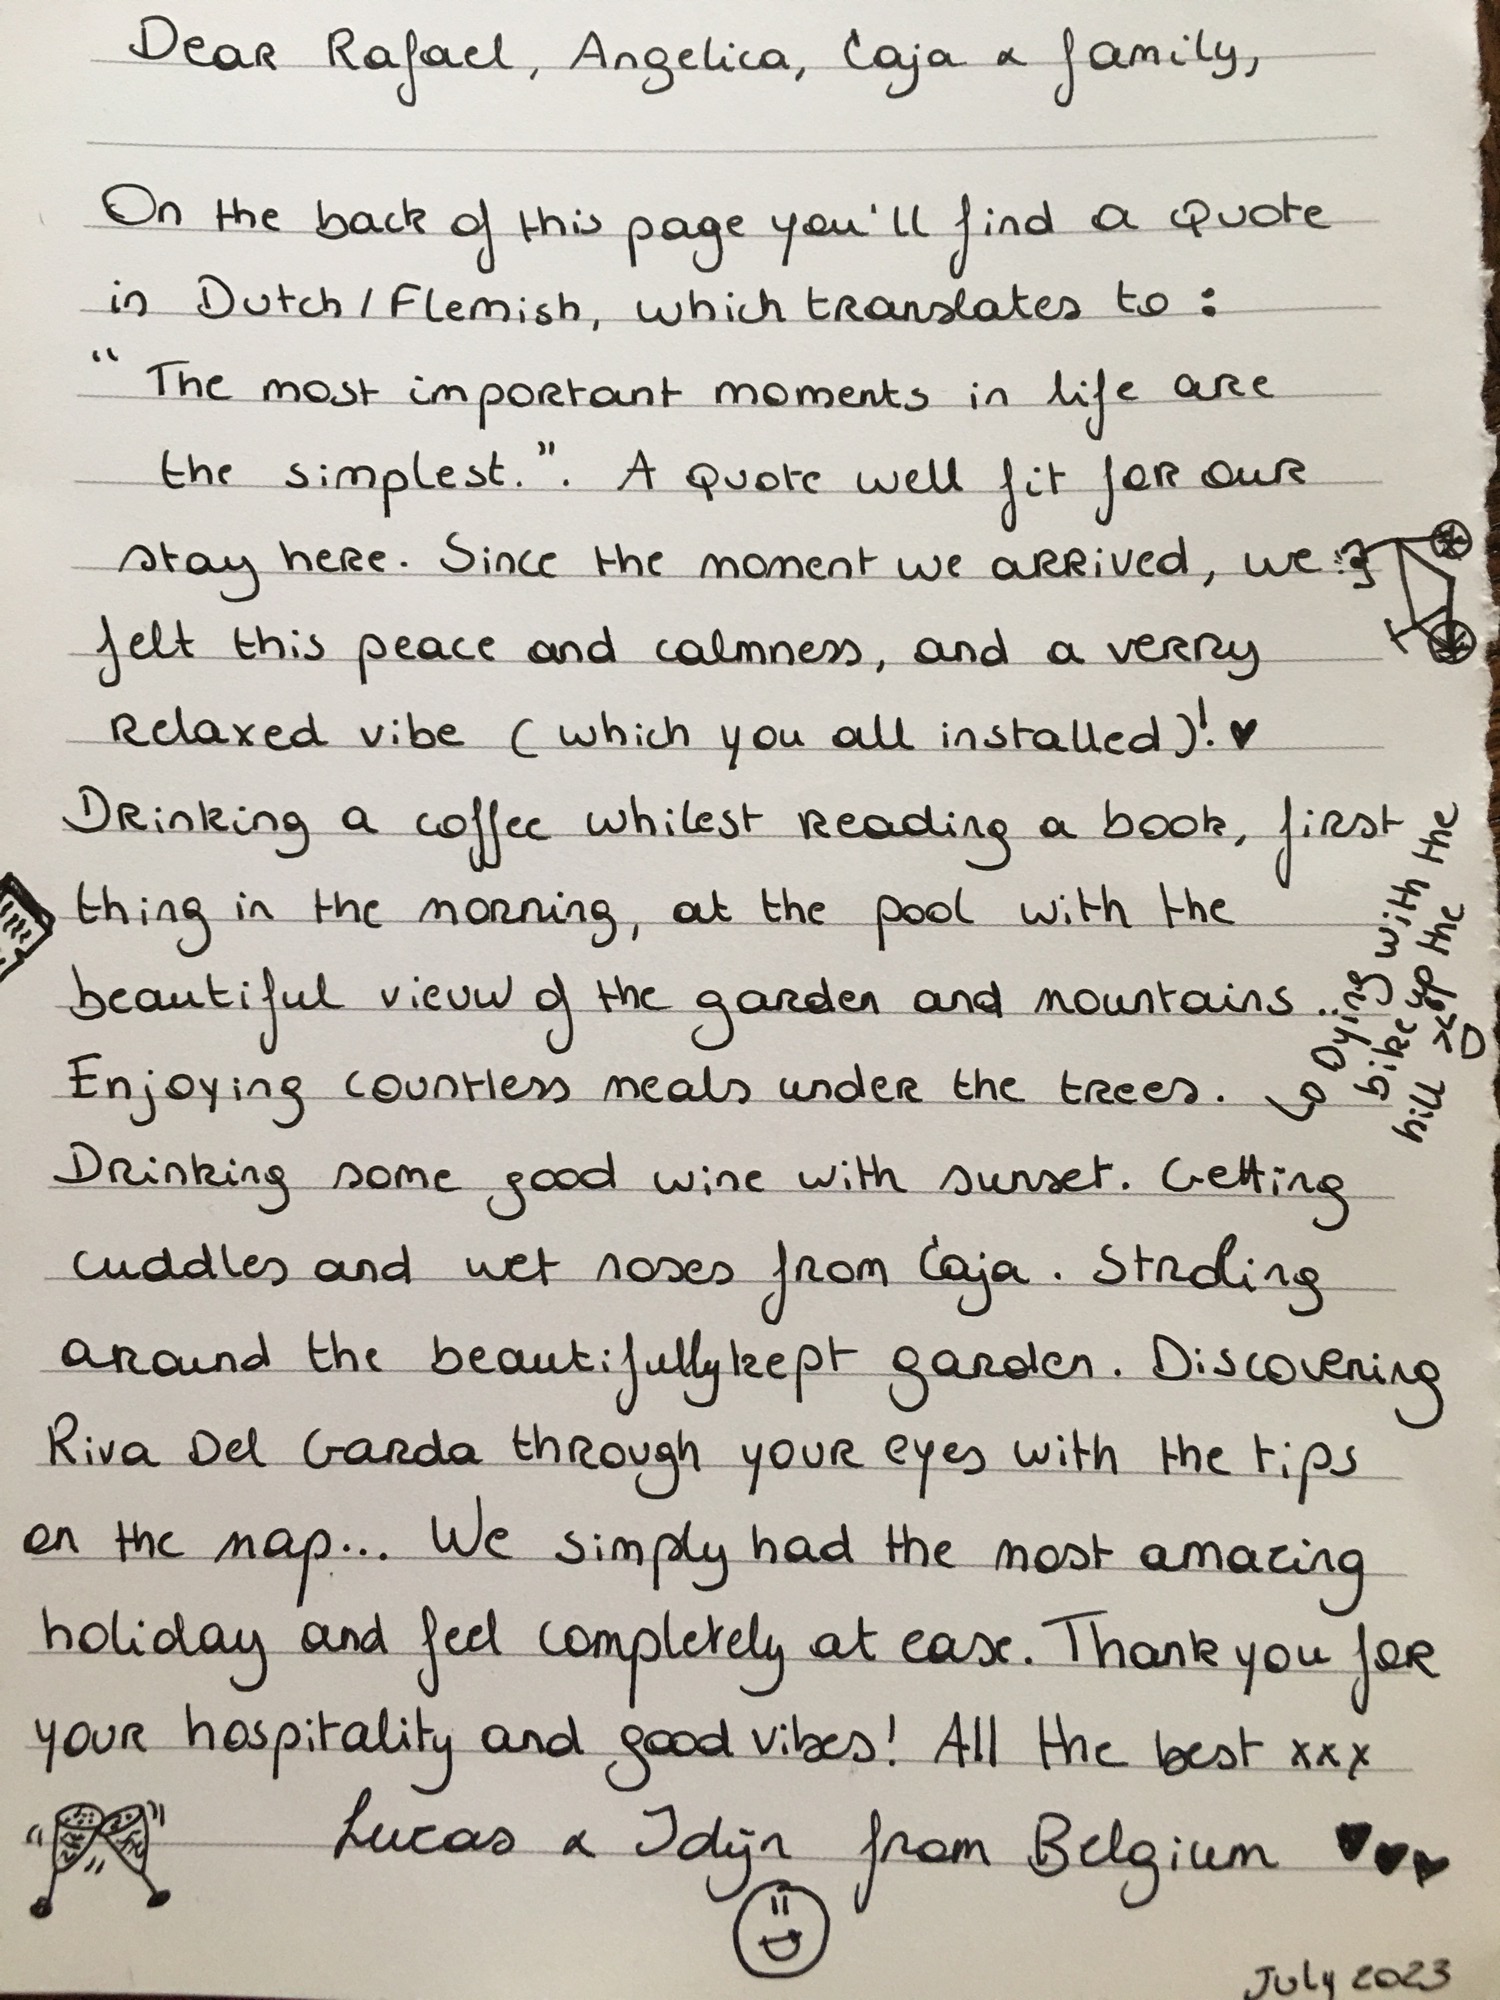 Dear Rafael, Angelica, Caja & family,
On the back of this page you'll find a Quote
in Dutch/Flemish, which translates to :
" The most important moments in life are
the simplest.". A Quote well fit for our
stay here. Since the moment we arrived, we
felt this peace and calmness, and a verry
relaxed vibe ( which you all installed )! ♥
Drinking a coffee whilest reading a book, first
thing in the morning, at the pool with the
beautiful vieuw of the garden and mountains ..
Enjoying countless meals under the trees.
↳ Dying with the
bike up the
hill top XD
Drinking some good wine with sunset. Getting
cuddles and wet noses from Caja. Stroling
around the beautifully kept garden. Discovering
Riva Del Garda through your eyes with the tips
on the map... We simply had the most amazing
holiday and feel completely at ease. Thank you for
your hospitality and good vibes! All the best xxx
Lucas & Idijn from Belgium ♥♥♥
July 2023